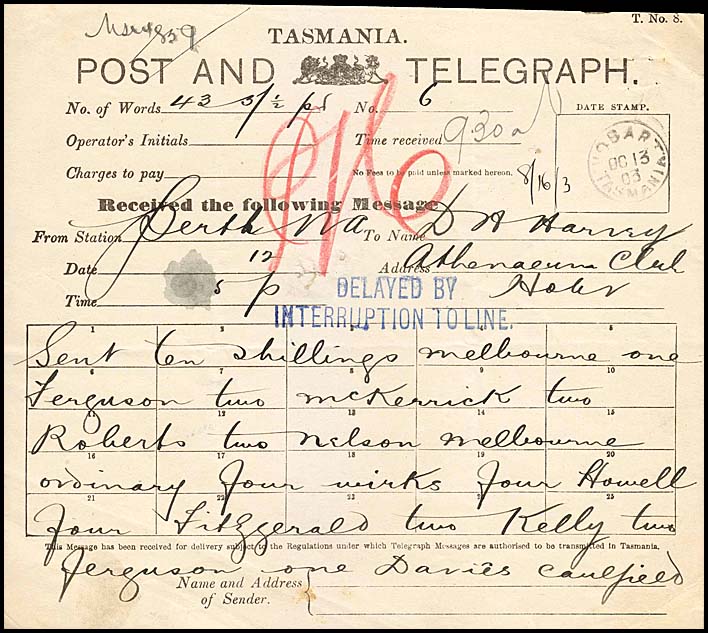 T. No. 8.
TASMANIA.
POST AND TELEGRAPH.
No. of Words 43 3/½ pd No. 6
DATE STAMP.
Operator's Initials Time received 930 a
HOBART
OC 13
03
TASMANIA
Charges to pay No Fees to be paid unless marked hereon.
8/16/3
Received the following Message
From Station Perth WA To Name D H Harvey
Date 12 Address Athenaeum Club
Time 5 p Hobt
DELAYED BY
INTERRUPTION TO LINE.
1 2 3 4 5
Sent ten shillings melbourne one
6 7 8 9 10
Ferguson two McKerrick two
11 12 13 14 15
Roberts two Nelson melbourne
16 17 18 19 20
ordinary four wirks four Howell
21 22 23 24 25
four Fitzgerald two Kelly two
This Message has been received for delivery subject to the Regulations under which Telegraph Messages are authorised to be transmitted in Tasmania.
ferguson one Davies caulfield
Name and Address
of Sender.